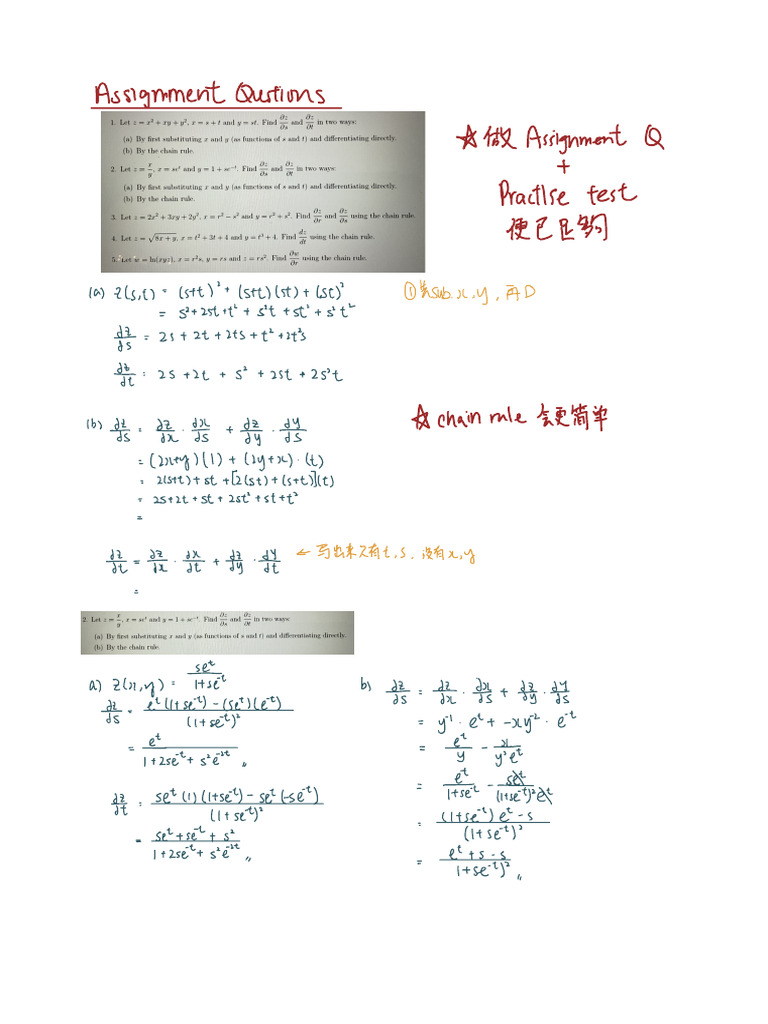 Assignment Qustions
1. Let z = x² + xy + y², x = s + t and y = st. Find ∂z/∂s and ∂z/∂t in two ways:
(a) By first substituting x and y (as functions of s and t) and differentiating directly.
(b) By the chain rule.
2. Let z = x/y, x = seᵗ and y = 1 + se⁻ᵗ. Find ∂z/∂s and ∂z/∂t in two ways:
(a) By first substituting x and y (as functions of s and t) and differentiating directly.
(b) By the chain rule.
3. Let z = 2x² + 3xy + 2y², x = r² − s² and y = r² + s². Find ∂z/∂r and ∂z/∂s using the chain rule.
4. Let z = √(8x + y), x = t² + 3t + 4 and y = t³ + 4. Find dz/dt using the chain rule.
5. Let w = ln(xyz), x = r²s, y = rs and z = rs². Find ∂w/∂r using the chain rule.
☆ 做 Assignment Q
+
Practise test
便已足夠
1a) Z(s,t) = (s+t)² + (s+t)(st) + (st)²
= s²+2st+t² + s²t + st² + s²t²
∂z/∂s = 2s + 2t + 2ts + t² + 2t²s
∂z/∂t = 2s + 2t + s² + 2st + 2s²t
① 先sub x, y, 再D
1b) ∂z/∂s = ∂z/∂x · ∂x/∂s + ∂z/∂y · ∂y/∂s
= (2x+y)(1) + (2y+x)·(t)
= 2(s+t) + st + [2(st) + (s+t)](t)
= 2s+2t + st + 2st² + st + t²
=
☆ chain rule 会更简单
∂z/∂t = ∂z/∂x · ∂x/∂t + ∂z/∂y · ∂y/∂t
=
← 写出来只有t, s. 没有x, y
2. Let z = x/y, x = seᵗ and y = 1 + se⁻ᵗ. Find ∂z/∂s and ∂z/∂t in two ways:
(a) By first substituting x and y (as functions of s and t) and differentiating directly.
(b) By the chain rule.
a) Z(x,y) = seᵗ/(1+se⁻ᵗ)
∂z/∂s = (eᵗ(1+se⁻ᵗ) − (seᵗ)(e⁻ᵗ))/(1+se⁻ᵗ)²
= eᵗ/(1+2se⁻ᵗ + s²e⁻²ᵗ) 〃
∂z/∂t = (seᵗ(1)(1+se⁻ᵗ) − seᵗ(−se⁻ᵗ))/(1+se⁻ᵗ)²
= (seᵗ + se⁻ᵗ + s²)/(1+2se⁻ᵗ + s²e⁻²ᵗ) 〃
b) ∂z/∂s = ∂z/∂x · ∂x/∂s + ∂z/∂y · ∂y/∂s
= y⁻¹ · eᵗ + −xy⁻² · e⁻ᵗ
= eᵗ/y − x/(y²eᵗ)
= eᵗ/(1+se⁻ᵗ) − seᵗ/((1+se⁻ᵗ)²eᵗ)
= ((1+se⁻ᵗ)eᵗ − s)/(1+se⁻ᵗ)²
= (eᵗ + s − s)/(1+se⁻ᵗ)² 〃